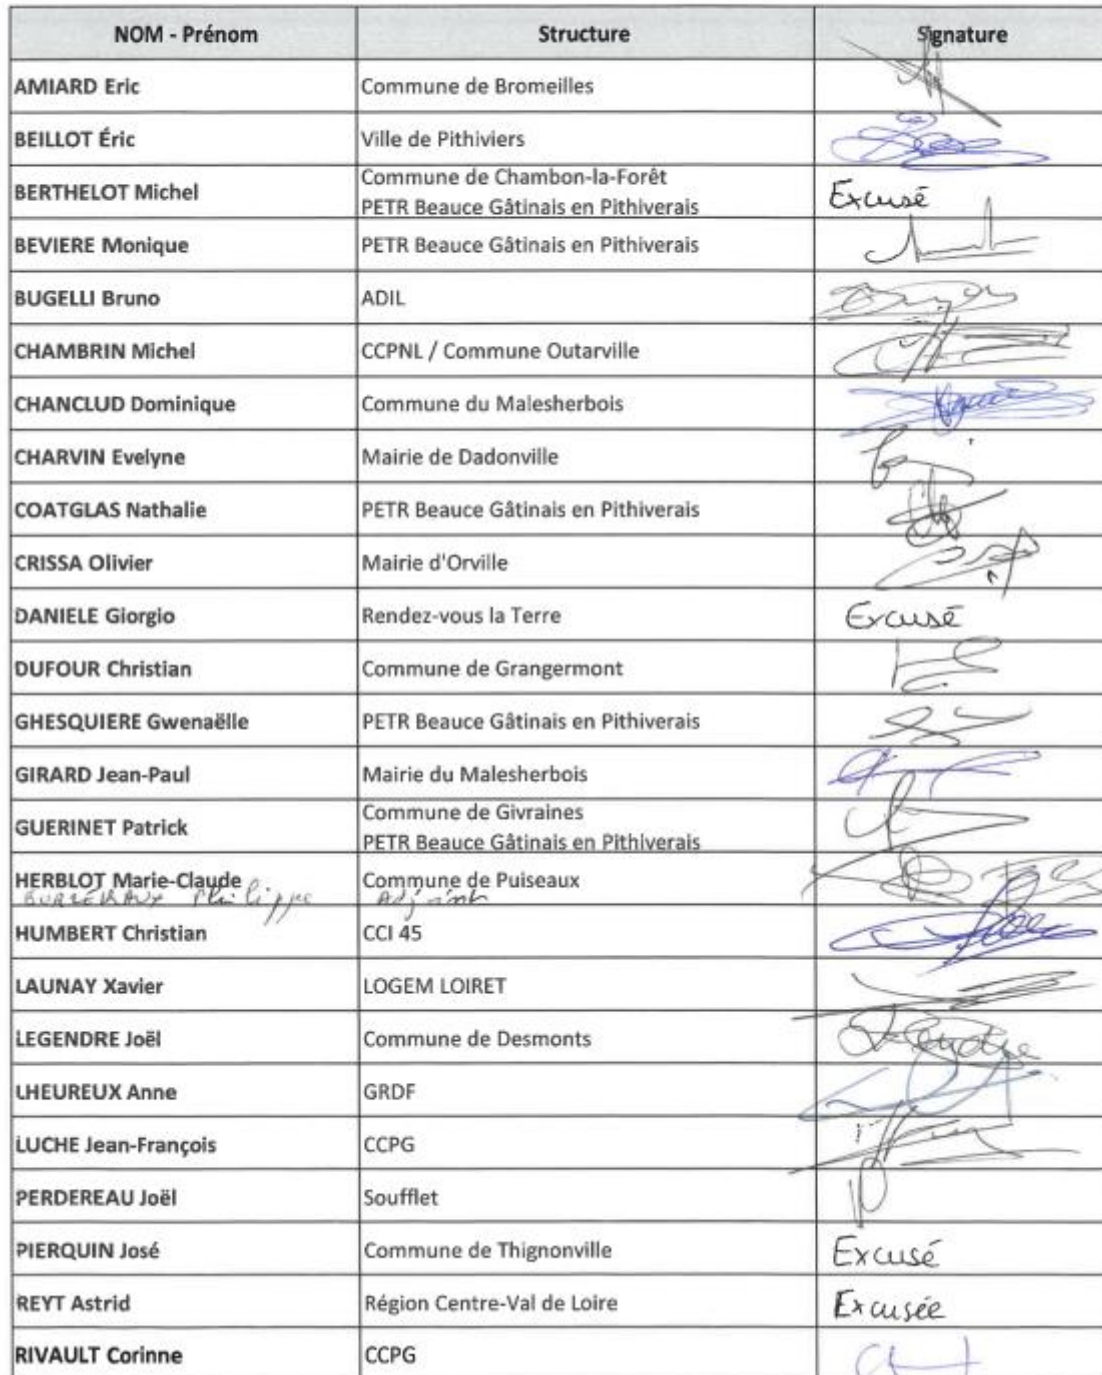 NOM - Prénom Structure Signature
AMIARD Eric Commune de Bromeilles
BEILLOT Éric Ville de Pithiviers
BERTHELOT Michel Commune de Chambon-la-Forêt Excusé
PETR Beauce Gâtinais en Pithiverais
BEVIERE Monique PETR Beauce Gâtinais en Pithiverais
BUGELLI Bruno ADIL
CHAMBRIN Michel CCPNL / Commune Outarville
CHANCLUD Dominique Commune du Malesherbois
CHARVIN Evelyne Mairie de Dadonville
COATGLAS Nathalie PETR Beauce Gâtinais en Pithiverais
CRISSA Olivier Mairie d'Orville
DANIELE Giorgio Rendez-vous la Terre Excusé
DUFOUR Christian Commune de Grangermont
GHESQUIERE Gwenaëlle PETR Beauce Gâtinais en Pithiverais
GIRARD Jean-Paul Mairie du Malesherbois
GUERINET Patrick Commune de Givraines
PETR Beauce Gâtinais en Pithiverais
HERBLOT Marie-Claude Commune de Puiseaux
Philippe Adjoint
HUMBERT Christian CCI 45
LAUNAY Xavier LOGEM LOIRET
LEGENDRE Joël Commune de Desmonts
LHEUREUX Anne GRDF
LUCHE Jean-François CCPG
PERDEREAU Joël Soufflet
PIERQUIN José Commune de Thignonville Excusé
REYT Astrid Région Centre-Val de Loire Excusée
RIVAULT Corinne CCPG